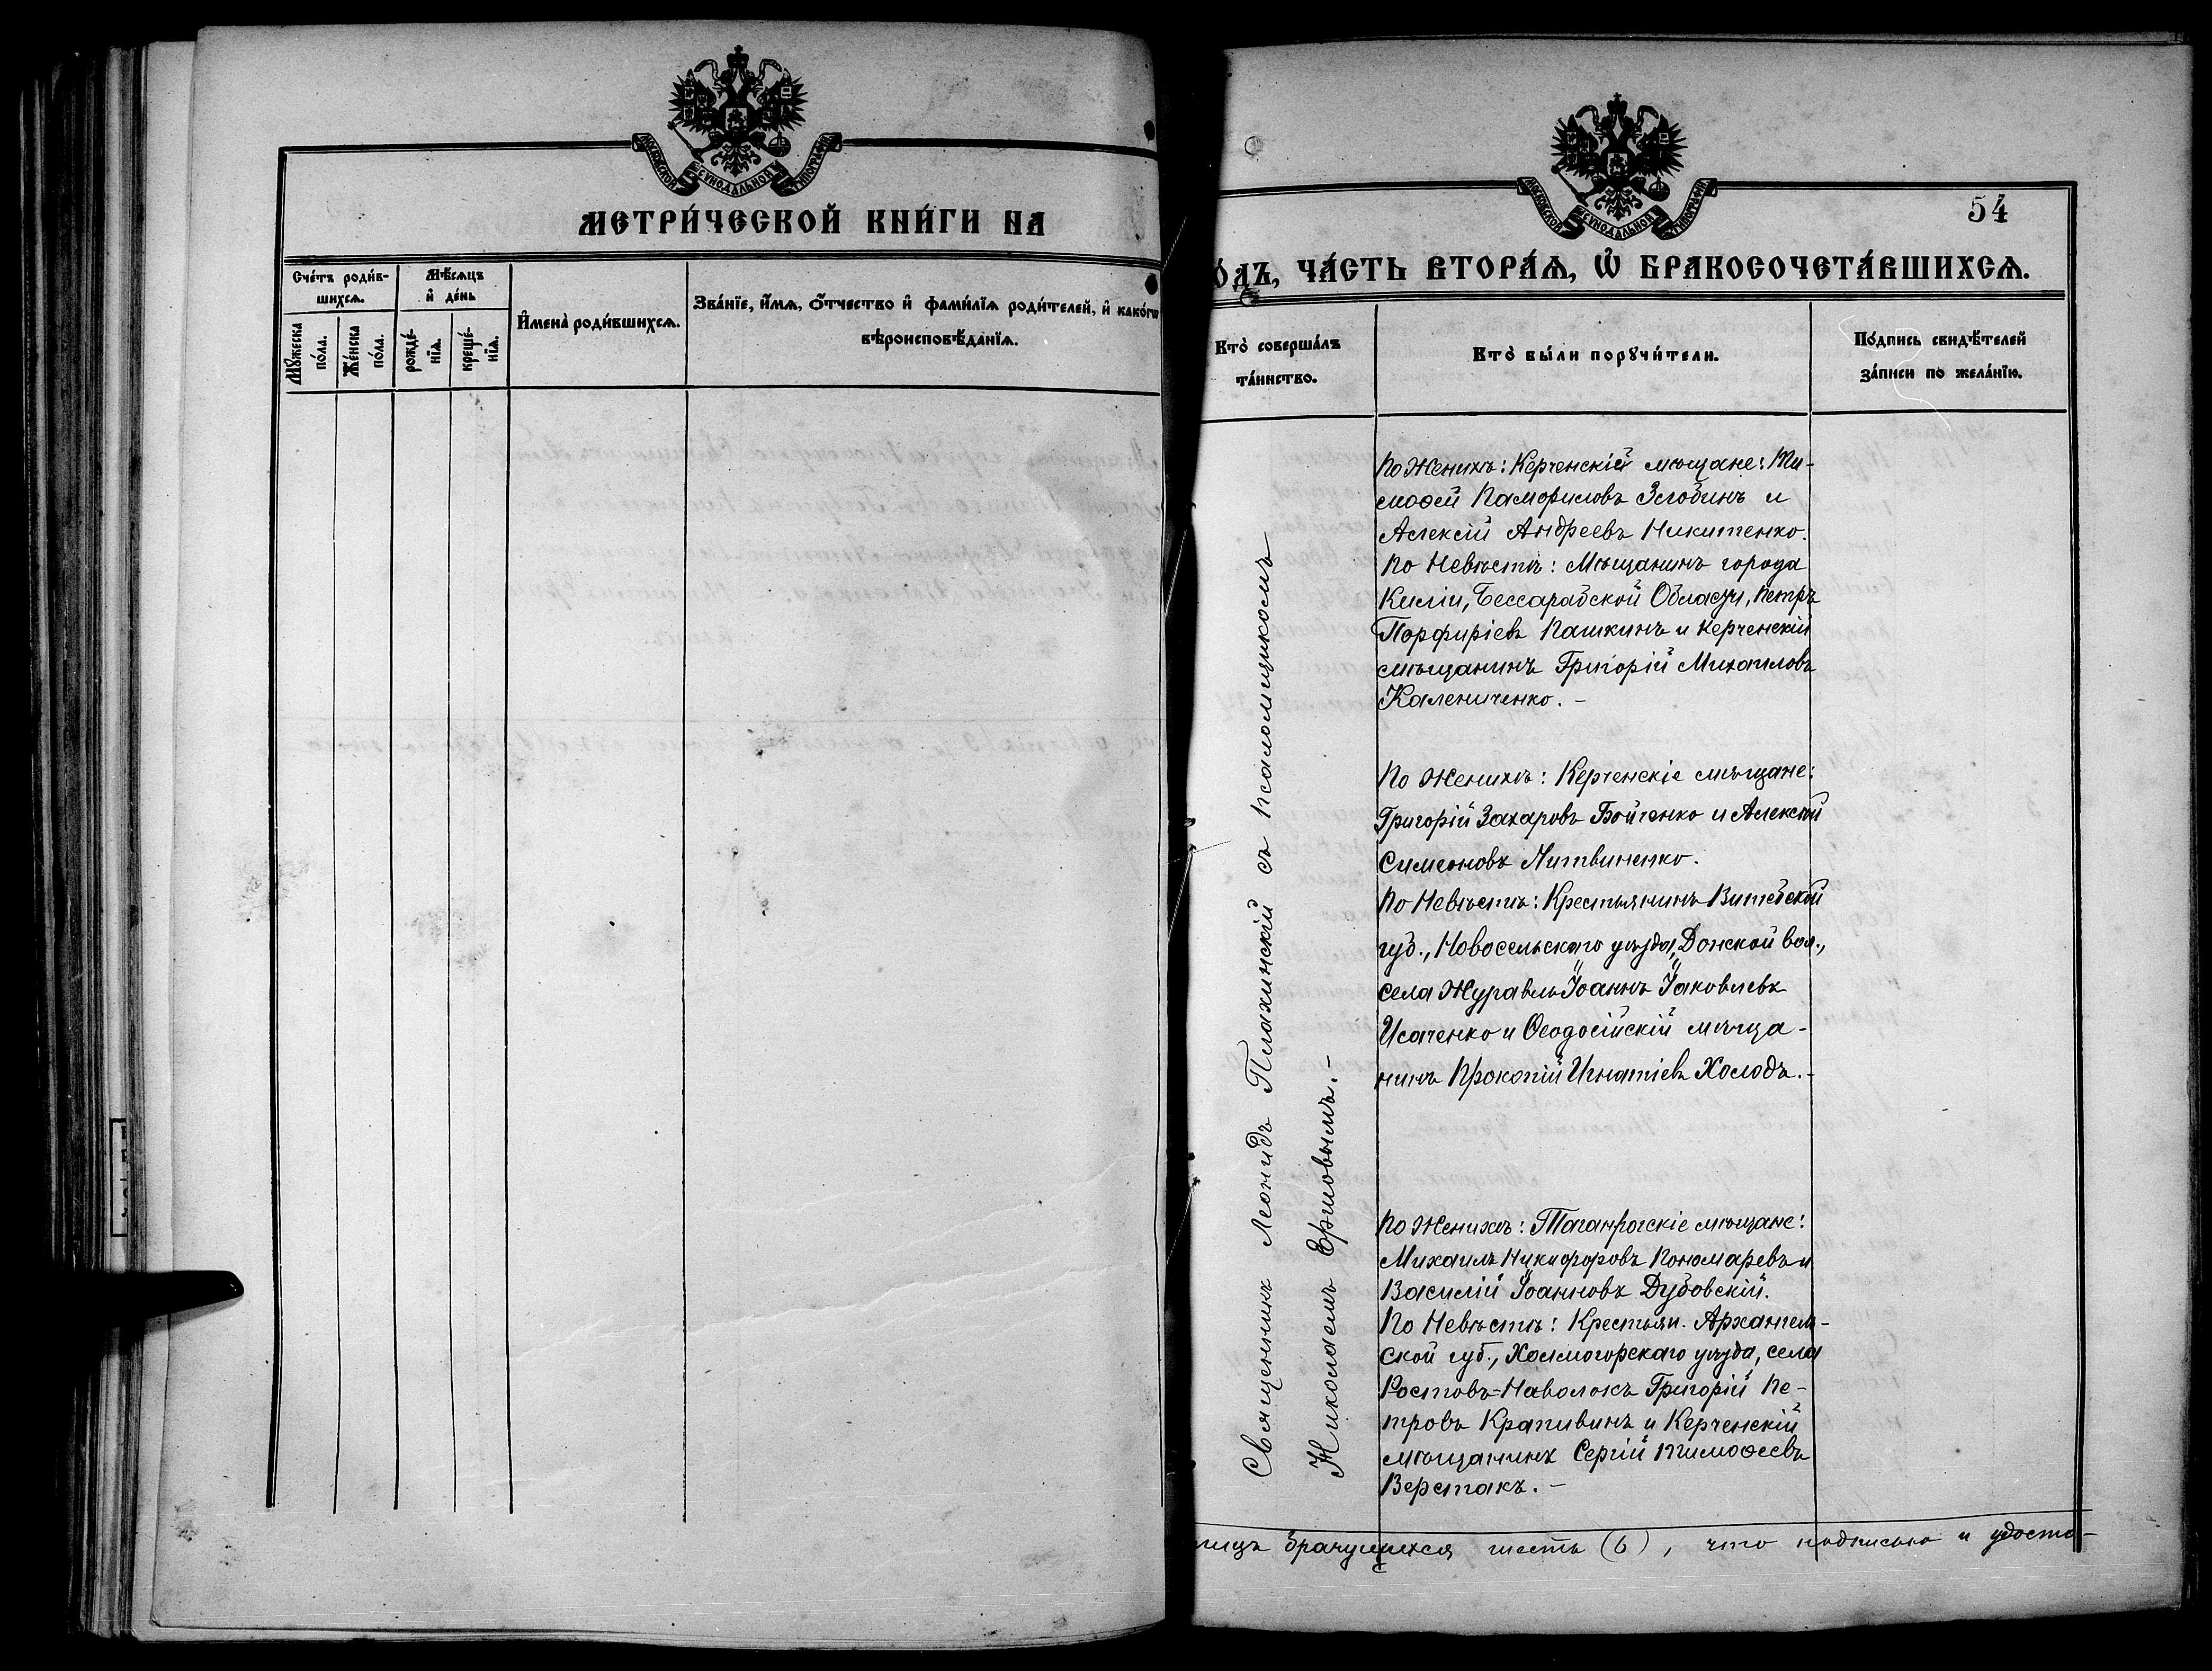 МОСКОВСКОЙ СѴНОДАЛЬНОЙ ТИПОГРАФІИ
МЕТРИ́ЧЕСКОЙ КНИ́ГИ НА
Сче́тъ роди́в-
шихсѧ.
Мꙋжеска
по́ла.
Же́нска
по́ла.
Мѣ́сѧцъ
и҆ де́нь
рожде́-
нїѧ.
креще́-
нїѧ.
И҆мена̀ роди́вшихсѧ.
Зва́нїе, и҆́мѧ, ѻ҆́тчество и҆ фами́лїѧ роди́телей, и҆ како́гѡ
вѣроисповѣ́данїѧ.
МОСКОВСКОЙ СѴНОДАЛЬНОЙ ТИПОГРАФІИ
54
О́ДЪ, ЧА́СТЬ ВТОРА́Ѧ, Ѽ БРАКОСОЧЕТА́ВШИХСѦ.
Кто̀ соверша́лъ
та́инство.
Кто̀ бы́ли порꙋчи́тели.
По́дпись свидѣ́телей
за́писи по жела́нїю.
Священникъ Леонидъ Плахинскій съ псаломщикомъ
Николаемъ Ершовымъ.-
По Женихѣ: Керченскіе мѣщане: Ти-
моѳей Памфиловъ Злобинъ и
Алексій Андреевъ Никитенко.
По Невѣстѣ: Мѣщанинъ города
Киліи, Бессарабской Области, Петръ
Порфиріевъ Пашкинъ и Керченскій
мѣщанинъ Григорій Михаиловъ
Калениченко. -
По Женихѣ: Керченскіе мѣщане:
Григорій Захаровъ Бойченко и Алексѣй
Симеоновъ Литвиненко.
По Невѣстѣ: Крестьянинъ Витебской
губ., Новосельскаго уѣзда, Донской вол.,
села Журавль Іоаннъ Іаковлевъ
Исаченко и Ѳеодосійскій мѣща-
нинъ Прокопій Игнатіевъ Холодъ.-
По Женихѣ: Таганрогскіе мѣщане:
Михаилъ Никифоровъ Пономаревъ и
Василій Іоанновъ Дубовскій.
По Невѣстѣ: Крестьян. Архангель-
ской губ., Холмогорскаго уѣзда, села
Ростовъ-Наволокъ Григорій Пе-
тровъ Крапивинъ и Керченскій
мѣщанинъ Сергій Тимоѳеевъ
Верстакъ. -
лицъ брачущихся шесть (6), что подписью и удосто-